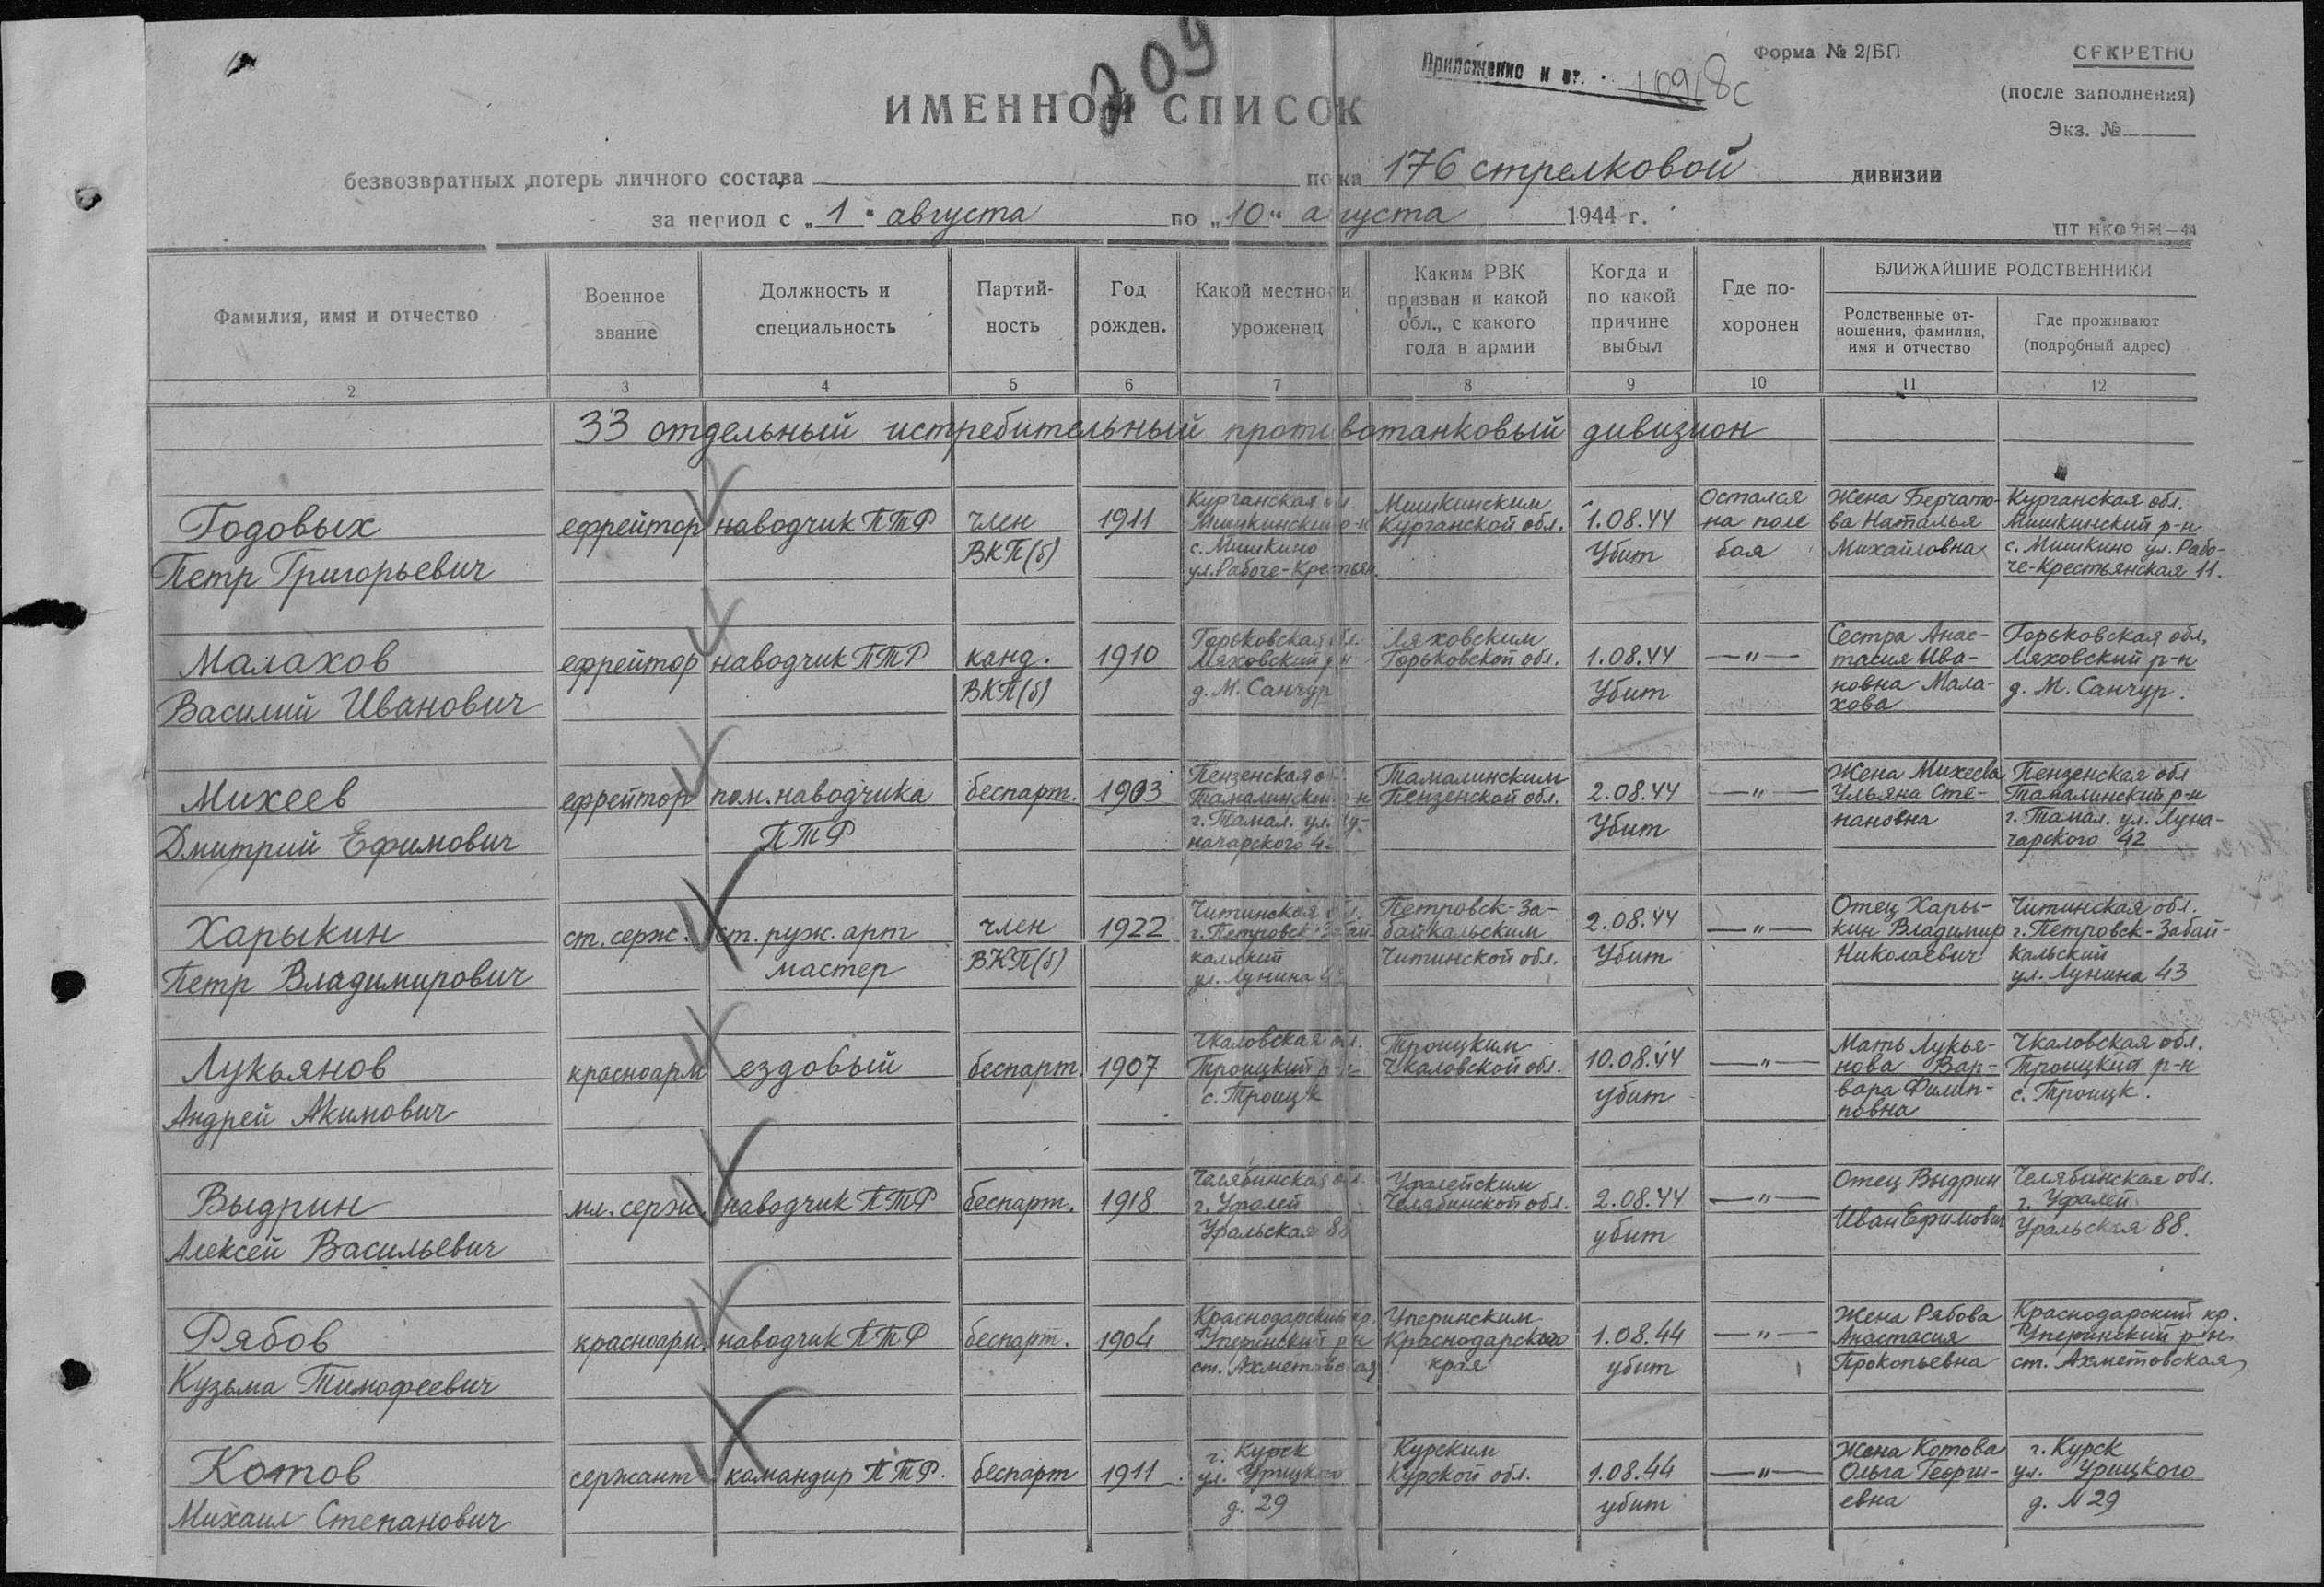 209
Приложение к вх. 10918с
Форма № 2/БП
СЕКРЕТНО
(после заполнения)
Экз. №
ИМЕННОЙ СПИСОК
безвозвратных потерь личного состава полка 176 стрелковой дивизии
за период с „1" августа по „10" августа 1944 г.
Фамилия, имя и отчество
Военное звание
Должность и специальность
Партий-ность
Год рожден.
Какой местности уроженец
Каким РВК призван и какой обл., с какого года в армии
Когда и по какой причине выбыл
Где по-хоронен
БЛИЖАЙШИЕ РОДСТВЕННИКИ
Родственные от-ношения, фамилия, имя и отчество
Где проживают (подробный адрес)
2 3 4 5 6 7 8 9 10 11 12
33 отдельный истребительный противотанковый дивизион
Годовых Петр Григорьевич
ефрейтор
наводчик ПТР
член ВКП(б)
1911
Курганская обл. Мишкинский р-н с. Мишкино ул. Рабоче-Крестьян.
Мишкинским Курганской обл.
1.08.44 Убит
Остался на поле боя
Жена Берчато-ва Наталья Михайловна
Курганская обл. Мишкинский р-н с. Мишкино ул. Рабо-че-Крестьянская 11.
Малахов Василий Иванович
ефрейтор
наводчик ПТР
канд. ВКП(б)
1910
Горьковская обл. Ляховский р-н д. М. Санчур
Ляховским Горьковской обл.
1.08.44 Убит
—"—
Сестра Анас-тасия Ива-новна Мала-хова
Горьковская обл. Ляховский р-н д. М. Санчур.
Михеев Дмитрий Ефимович
ефрейтор
пом. наводчика ПТР
беспарт.
1903
Пензенская обл. Тамалинский р-н г. Тамал. ул. Лу-начарского 42
Тамалинским Пензенской обл.
2.08.44 Убит
—"—
Жена Михеева Ульяна Сте-пановна
Пензенская обл Тамалинский р-н г. Тамал. ул. Луна-чарского 42
Харыкин Петр Владимирович
ст. серж.
ст. руж. арт мастер
член ВКП(б)
1922
Читинская обл. г. Петровск-Забай-кальский ул. Лунина 43
Петровск-За-байкальским Читинской обл.
2.08.44 Убит
—"—
Отец Хары-кин Владимир Николаевич
Читинская обл. г. Петровск-Забай-кальский ул. Лунина 43
Лукьянов Андрей Акимович
красноарм
ездовый
беспарт.
1907
Чкаловская обл. Троицкий р-н с. Троицк
Троицким Чкаловской обл.
10.08.44 убит
—"—
Мать Лукья-нова Вар-вара Филип-повна
Чкаловская обл. Троицкий р-н с. Троицк.
Выдрин Алексей Васильевич
мл. серж.
наводчик ПТР
беспарт.
1918
Челябинская обл. г. Уфалей Уральская 88
Уфалейским Челябинской обл.
2.08.44 убит
—"—
Отец Выдрин Иван Ефимович
Челябинская обл. г. Уфалей Уральская 88.
Рябов Кузьма Тимофеевич
красноарм.
наводчик ПТР
беспарт.
1904
Краснодарский кр. Уперинский р-н ст. Ахметовская
Уперинским Краснодарского края
1.08.44 убит
—"—
Жена Рябова Анастасия Прокопьевна
Краснодарский кр. Уперинский р-н. ст. Ахметовская
Котов Михаил Степанович
сержант
командир ПТР.
беспарт
1911
г. Курск ул. Урицкого д. 29
Курским Курской обл.
1.08.44 убит
—"—
Жена Котова Ольга Георги-евна
г. Курск ул. Урицкого д. N 29